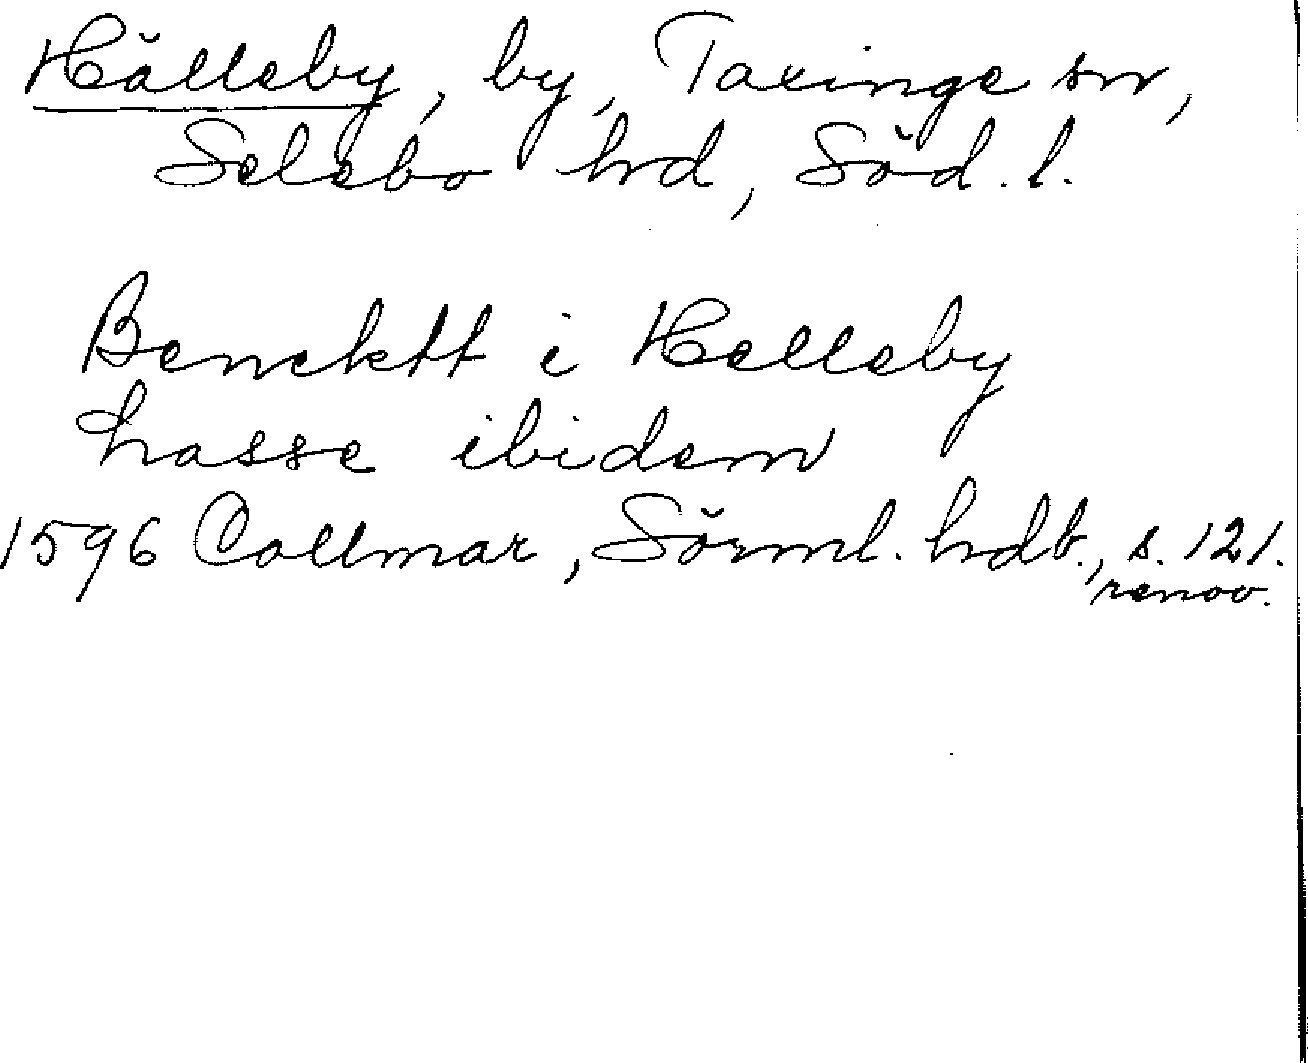 Hälleby, by, Taxinge sn,
Selebo hd, Söd. l.
Bencktt i Helleby
hasse ibidem
1596 Collmar, Sörml. hdb., s. 121.
renov.